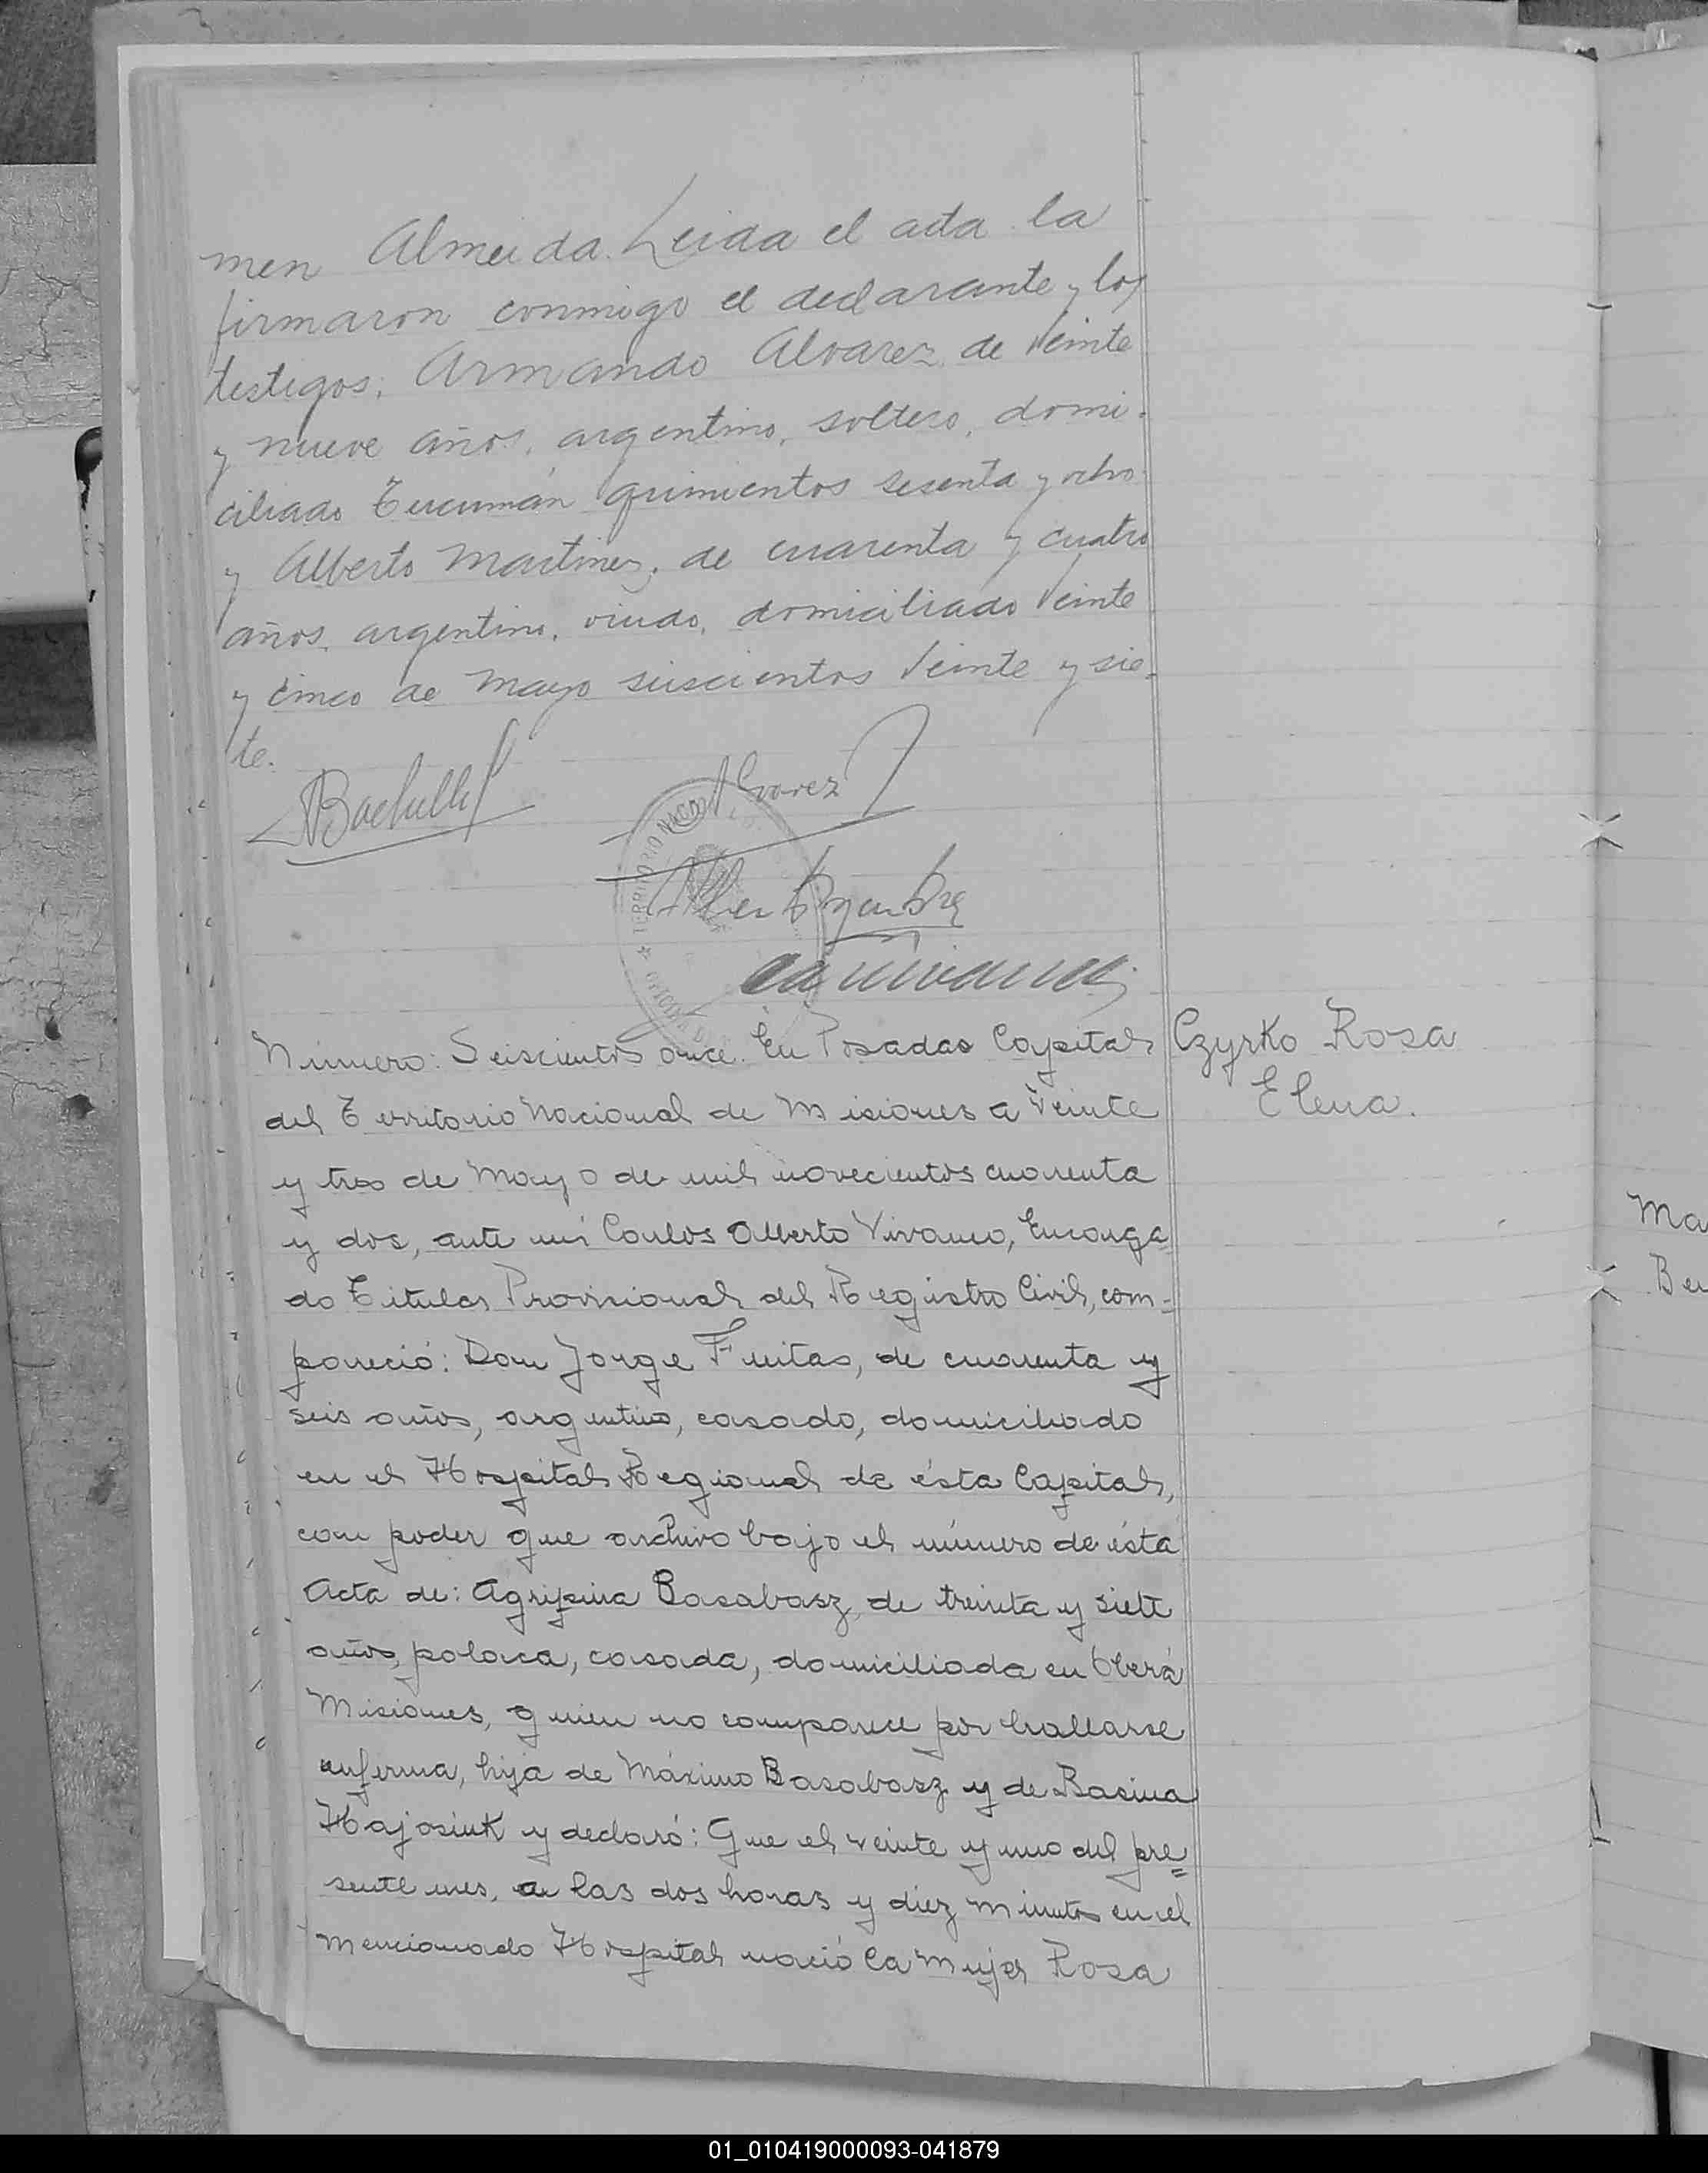 men Almeida. Leida el acta la
firmaron conmigo el declarante y los
testigos: Armando Alvarez de veinte
y nueve años, argentino, soltero, domi-
ciliado Tucumán quinientos sesenta y ocho
y Alberto Martinez, de cuarenta y cuatro
años, argentino, viudo, domiciliado Veinte
y cinco de Mayo seiscientos veinte y sie-
te.
Alvarez
TERRITORIO NACIONAL
Número: Seiscientos once. En Posadas Capital
del Territorio Nacional de Misiones a veinte
y tres de Mayo de mil novecientos cuarenta
y dos, ante mí Carlos Alberto Vivanco, Encarga-
do Titular Provisional del Registro Civil, com=
pareció: Don Jorge Freitas, de cuarenta y
seis años, argentino, casado, domiciliado
en el Hospital Regional de ésta Capital,
con poder que archivo bajo el número de ésta
Acta de: Agripina Basabasz, de treinta y siete
años, polaca, casada, domiciliada en Oberá
Misiones, quien no comparece por hallarse
enferma, hija de Máximo Basabasz y de Basina
Hajosiuk y declaró: Que el veinte y uno del pre=
sente mes, a las dos horas y diez minutos en el
mencionado Hospital nació la mujer Rosa
Czyrko Rosa
Elena.
Ma
Be
01_010419000093-041879